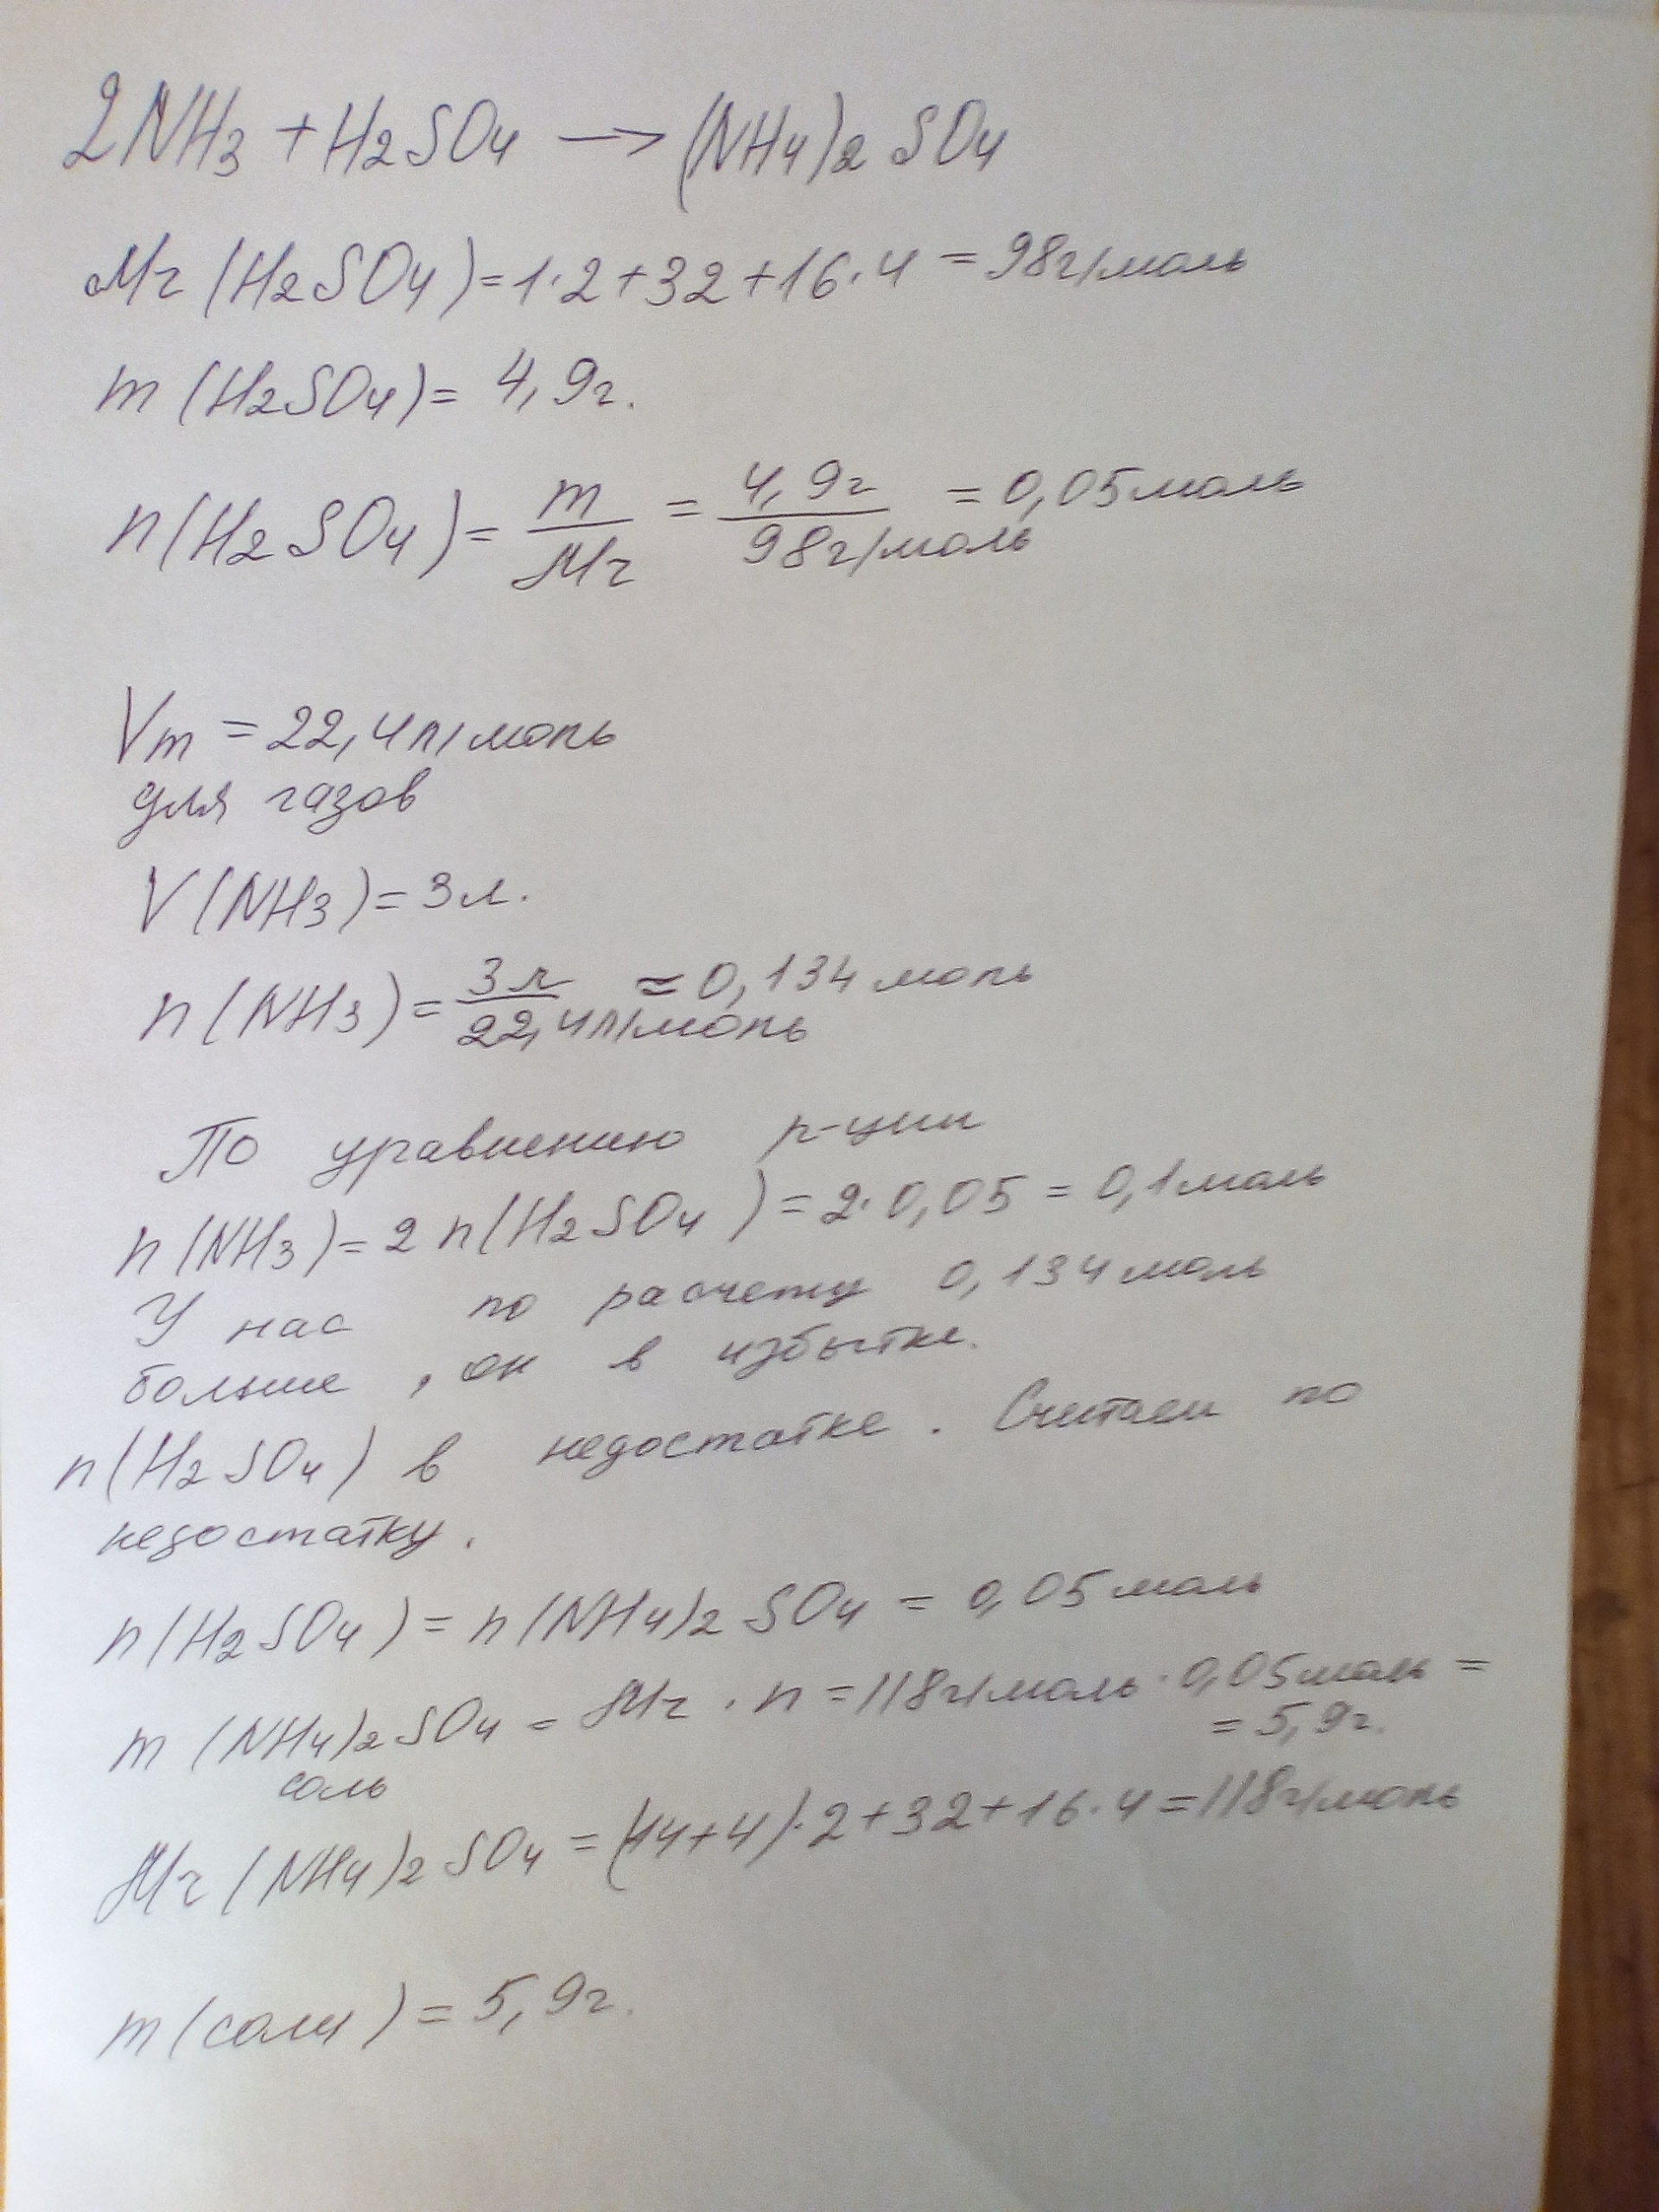 2NH3 + H2SO4 → (NH4)2 SO4
Mr (H2SO4) = 1·2+32+16·4 = 98г/моль
m (H2SO4) = 4,9г.
n(H2SO4) = m/Mr = 4,9г/98г/моль = 0,05моль
Vm = 22,4л/моль
для газов
V(NH3) = 3л.
n(NH3) = 3л/22,4л/моль ≈ 0,134 моль
По уравнению р-ции
n(NH3) = 2 n(H2SO4) = 2·0,05 = 0,1моль
У нас по расчету 0,134моль
больше, он в избытке.
n(H2SO4) в недостатке. Считаем по
недостатку.
n(H2SO4) = n(NH4)2 SO4 = 0,05моль
m (NH4)2SO4 = Mr · n = 118г/моль · 0,05моль =
= 5,9г.
соль
Mr (NH4)2 SO4 = (14+4)·2+32+16·4 = 118г/моль
m (соли) = 5,9г.